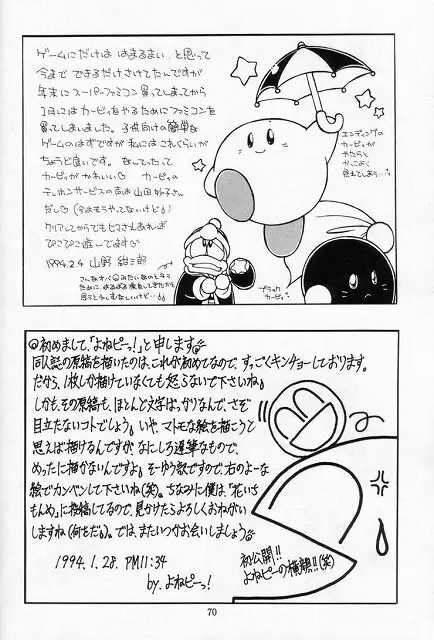 ゲームにだけは はまるまい、と思って
今まで できるだけさけてたんですが
年末に スーパーファミコン 買ってしまってから
1月には カービィをやるためにファミコンを
買ってしまいました。子供向けの簡単な
ゲームのはずですが 私には これくらいが
ちょうど良いです。なんてったって
カービィが かわいい♡ カービィの
テレホンサービスの声は 山田妙子さん
だし♡(今はもうやってないけど)
クリアしてからでもヒマさえあれば
ぴこぴこ遊んでます♡
1994.2.4 山野
エンディングの
カービィが
やたらと
かっこよく
見えてしまう…?
ブラック
カービィ?
◎初めまして、「よねピーっ!」と申します◎
同人誌の原稿を描いたのは、これが初めてなので、すっごくキンチョーしております。
だから、1枚しか描けていなくても怒らないで下さいね
しかも、その原稿も、ほとんど文字ばっかりなんで、さぞ
目立たないコトでしょう。いや、マトモな絵を描こうと
思えば描けるんですが、なにしろ遅筆なもので、
めったに描かないんですよ。そーゆう訳ですので、右のよーな
絵でカンベンして下さいね(笑)。ちなみに僕は、「花いち
もんめ」に投稿してるので、見かけたらよろしくおねがい
しますね(何をだ)。では、またいつかお会いしましょう
1994.1.28. PM11:34
by.よねピーっ!
初公開!!
よねピーの横顔!!(笑)
70